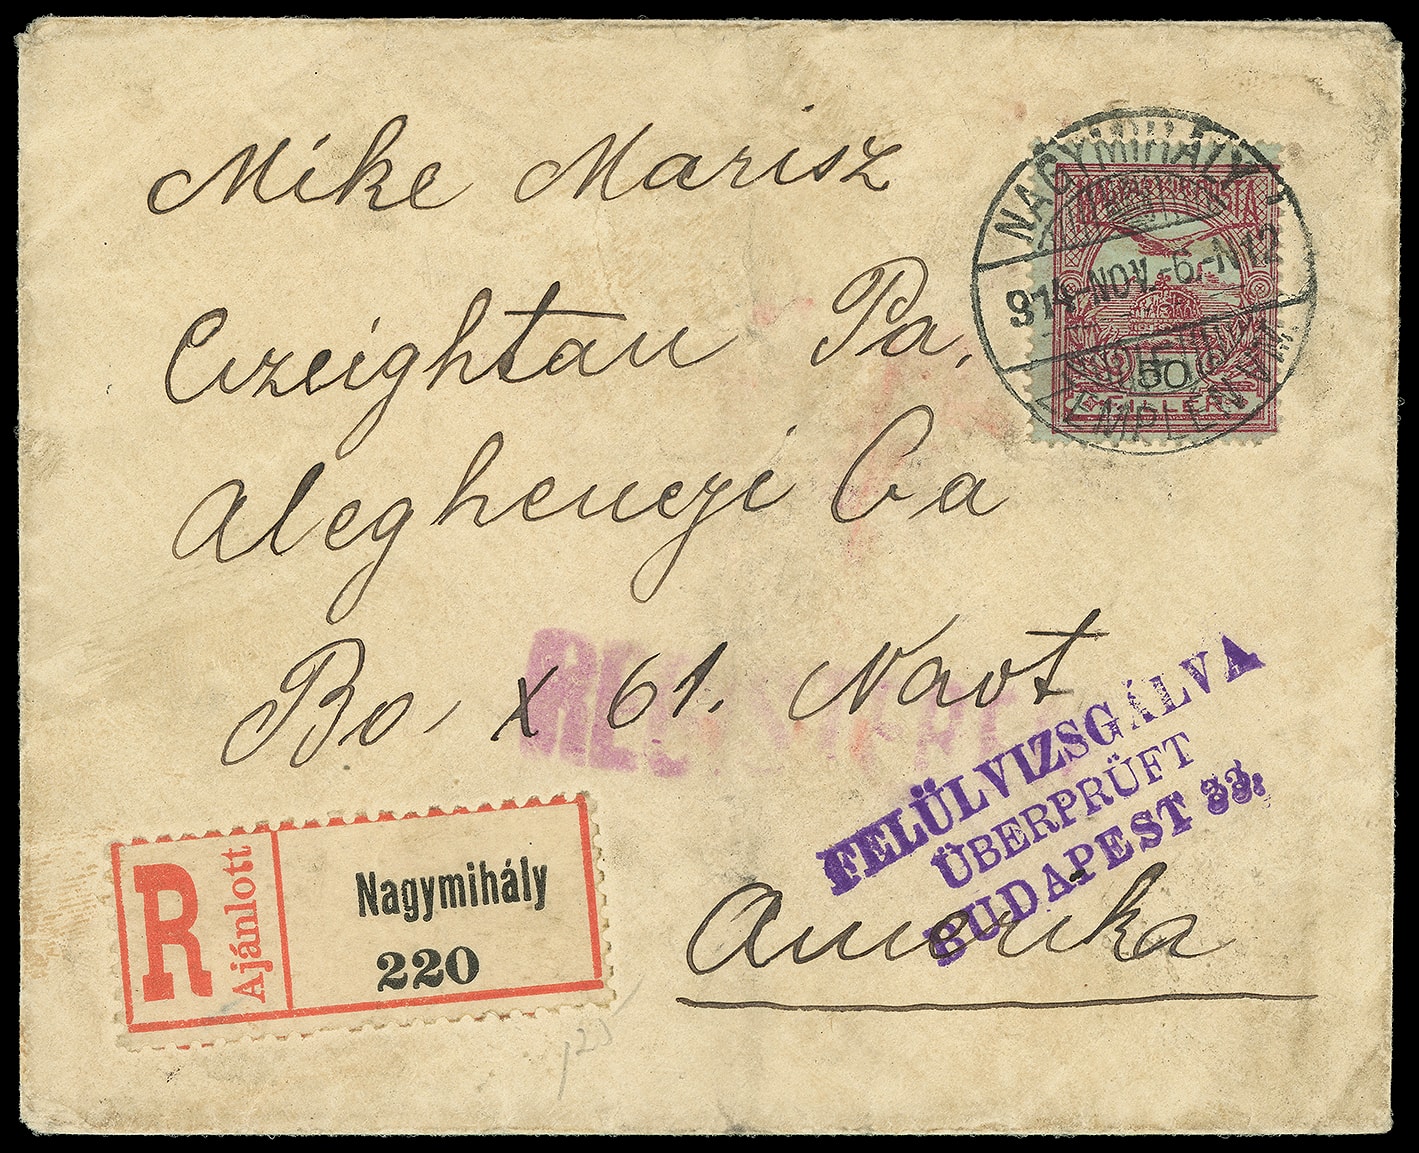 Mike Marisz
Crzeightan Pa.
Aleghenezi Ca
Bo. x 61. Navt
Amerika
NAGYMIHÁLY
914-NOV.-6-N12
ZEMPLÉN VM.
MAGYAR KIR. POSTA
50
FILLÉR
FELÜLVIZSGÁLVA
ÜBERPRÜFT
BUDAPEST 33.
R
Ajánlott
Nagymihály
220
125